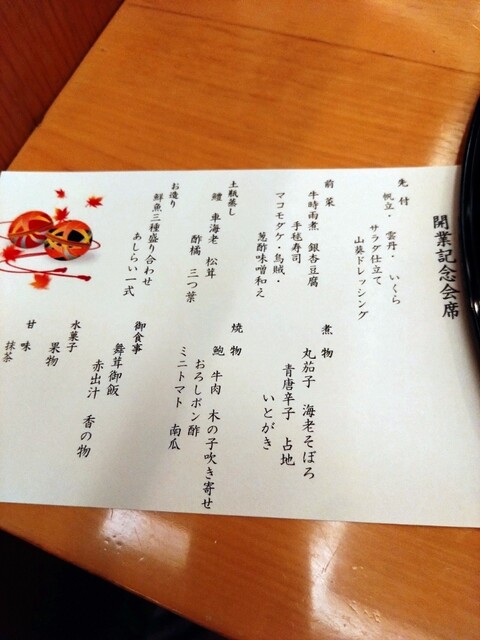 開業記念会席
先付
帆立・雲丹・いくら
サラダ仕立て
山葵ドレッシング
前菜
牛時雨煮 銀杏豆腐
手毬寿司
マコモダケ・烏賊・
葱酢味噌和え
土瓶蒸し
鱧 車海老 松茸
酢橘 三つ葉
お造り
鮮魚三種盛り合わせ
あしらい一式
煮物
丸茄子 海老そぼろ
青唐辛子 占地
いとがき
焼物
鮑 牛肉 木の子吹き寄せ
おろしポン酢
ミニトマト 南瓜
御食事
舞茸御飯
赤出汁 香の物
水菓子
果物
甘味
抹茶